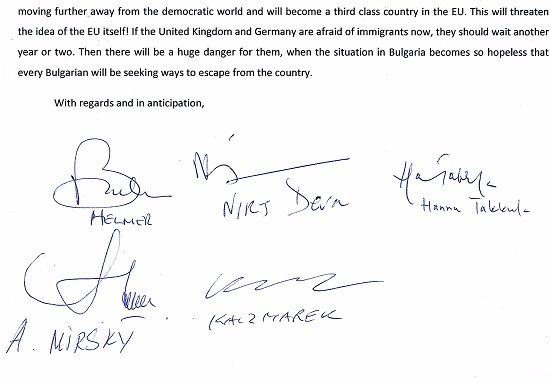 moving further away from the democratic world and will become a third class country in the EU. This will threaten
the idea of the EU itself! If the United Kingdom and Germany are afraid of immigrants now, they should wait another
year or two. Then there will be a huge danger for them, when the situation in Bulgaria becomes so hopeless that
every Bulgarian will be seeking ways to escape from the country.
With regards and in anticipation,
HELMER
NIRJ DEVA
Hannu Takkula
KACZMAREK
A. MIRSKY